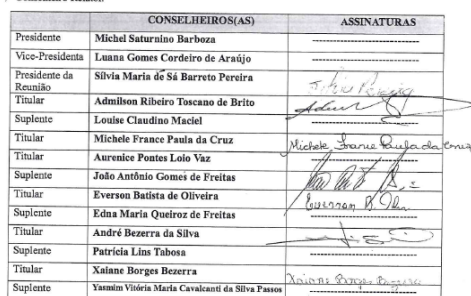 CONSELHEIROS(AS) ASSINATURAS
Presidente Michel Saturnino Barboza
Vice-Presidenta Luana Gomes Cordeiro de Araújo
Presidente da Reunião Sílvia Maria de Sá Barreto Pereira
Titular Admilson Ribeiro Toscano de Brito
Suplente Louise Claudino Maciel
Titular Michele France Paula da Cruz Michele France Paula da Cruz
Titular Aurenice Pontes Loio Vaz
Suplente João Antônio Gomes de Freitas
Titular Everson Batista de Oliveira
Suplente Edna Maria Queiroz de Freitas
Titular André Bezerra da Silva
Suplente Patrícia Lins Tabosa
Titular Xaiane Borges Bezerra Xaiane Borges Bezerra
Suplente Yasmim Vitória Maria Cavalcanti da Silva Passos